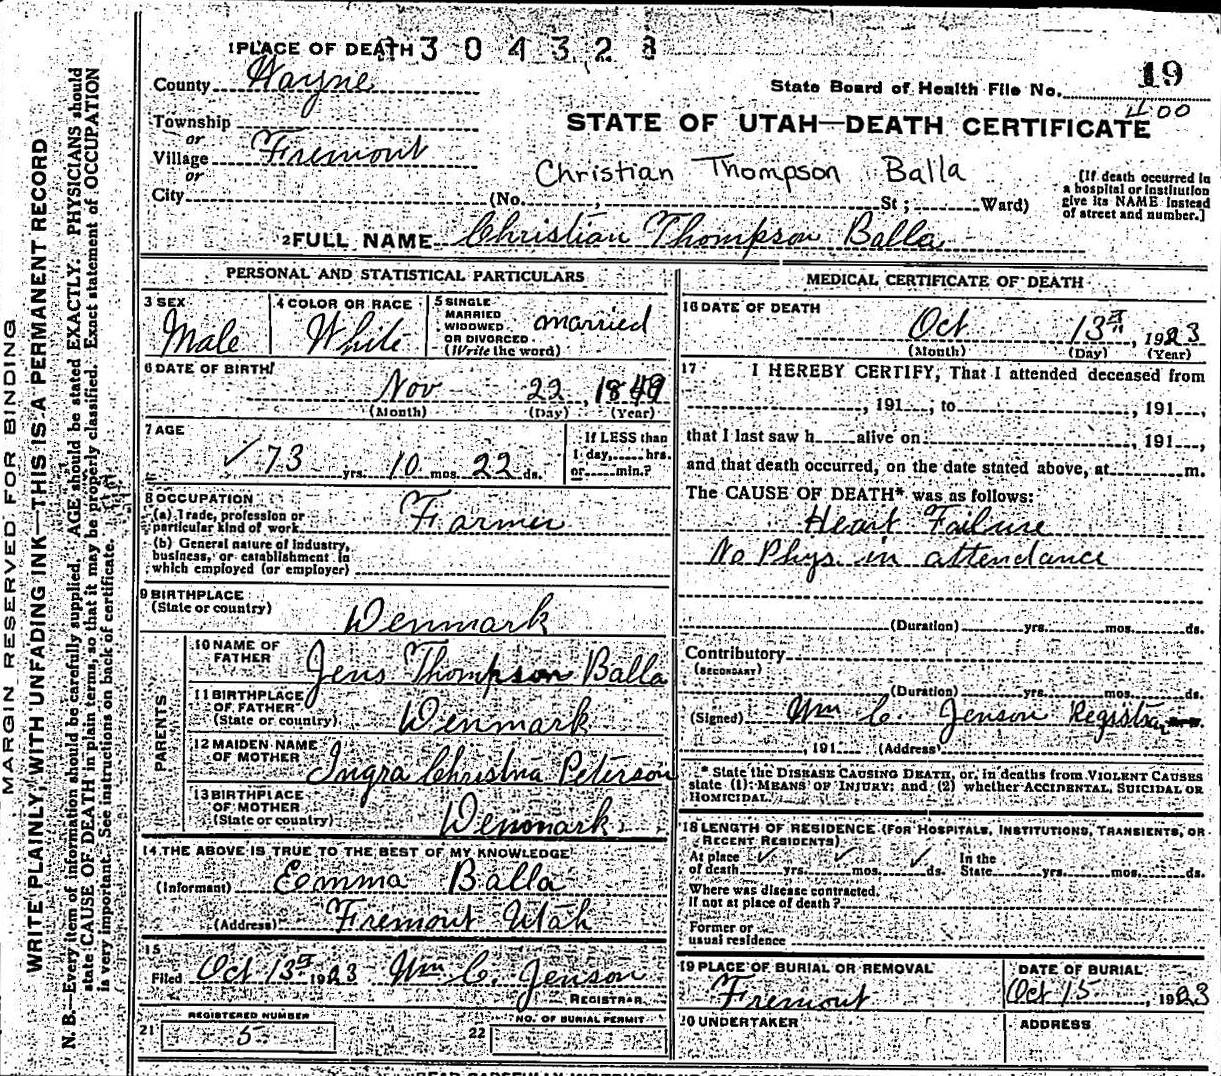 1 PLACE OF DEATH 304328
19
County Wayne
State Board of Health File No.
400
Township
or
Village Fremont
or
City (No. , St ; Ward)
STATE OF UTAH—DEATH CERTIFICATE
Christian Thompson Balla
[If death occurred in
a hospital or institution
give its NAME instead
of street and number.]
2 FULL NAME Christian Thompson Balla
PERSONAL AND STATISTICAL PARTICULARS
3 SEX
Male
4 COLOR OR RACE
White
5 SINGLE
MARRIED
WIDOWED
OR DIVORCED
(Write the word)
married
6 DATE OF BIRTH
Nov 22, 1849
(Month) (Day) (Year)
7 AGE
✓ 73 yrs. 10 mos. 22 ds.
If LESS than
1 day, hrs.
or min.?
8 OCCUPATION
(a) Trade, profession or
particular kind of work Farmer
(b) General nature of industry,
business, or establishment in
which employed (or employer)
9 BIRTHPLACE
(State or country) Denmark
PARENTS
10 NAME OF
FATHER Jens Thompson Balla
11 BIRTHPLACE
OF FATHER
(State or country) Denmark
12 MAIDEN NAME
OF MOTHER Ingra Christna Peterson
13 BIRTHPLACE
OF MOTHER
(State or country) Denmark
14 THE ABOVE IS TRUE TO THE BEST OF MY KNOWLEDGE
(Informant) Eemma Balla
(Address) Fremont Utah
15
Filed Oct 13th 1923 Wm C. Jenson
REGISTRAR
REGISTERED NUMBER
21 5
NO. OF BURIAL PERMIT
22
MEDICAL CERTIFICATE OF DEATH
16 DATE OF DEATH
Oct 13th, 1923
(Month) (Day) (Year)
17 I HEREBY CERTIFY, That I attended deceased from
, 191 , to , 191 ,
that I last saw h alive on , 191 ,
and that death occurred, on the date stated above, at m.
The CAUSE OF DEATH* was as follows:
Heart Failure
No Phys. in attendance
(Duration) yrs. mos. ds.
Contributory
(SECONDARY)
(Duration) yrs. mos. ds.
(Signed) Wm C. Jenson Registrar
, 191 (Address)
* State the DISEASE CAUSING DEATH, or, in deaths from VIOLENT CAUSES
state (1) MEANS OF INJURY; and (2) whether ACCIDENTAL, SUICIDAL OR
HOMICIDAL.
18 LENGTH OF RESIDENCE (FOR HOSPITALS, INSTITUTIONS, TRANSIENTS, OR
RECENT RESIDENTS)
At place
of death ✓ yrs. ✓ mos. ✓ ds.
In the
State yrs. mos. ds.
Where was disease contracted,
If not at place of death?
Former or
usual residence
19 PLACE OF BURIAL OR REMOVAL
Fremont
DATE OF BURIAL
Oct 15, 1923
20 UNDERTAKER
ADDRESS
MARGIN RESERVED FOR BINDING
WRITE PLAINLY, WITH UNFADING INK—THIS IS A PERMANENT RECORD
N. B.—Every item of information should be carefully supplied. AGE should be stated EXACTLY. PHYSICIANS should
state CAUSE OF DEATH in plain terms, so that it may be properly classified. Exact statement of OCCUPATION
is very important. See instructions on back of certificate.